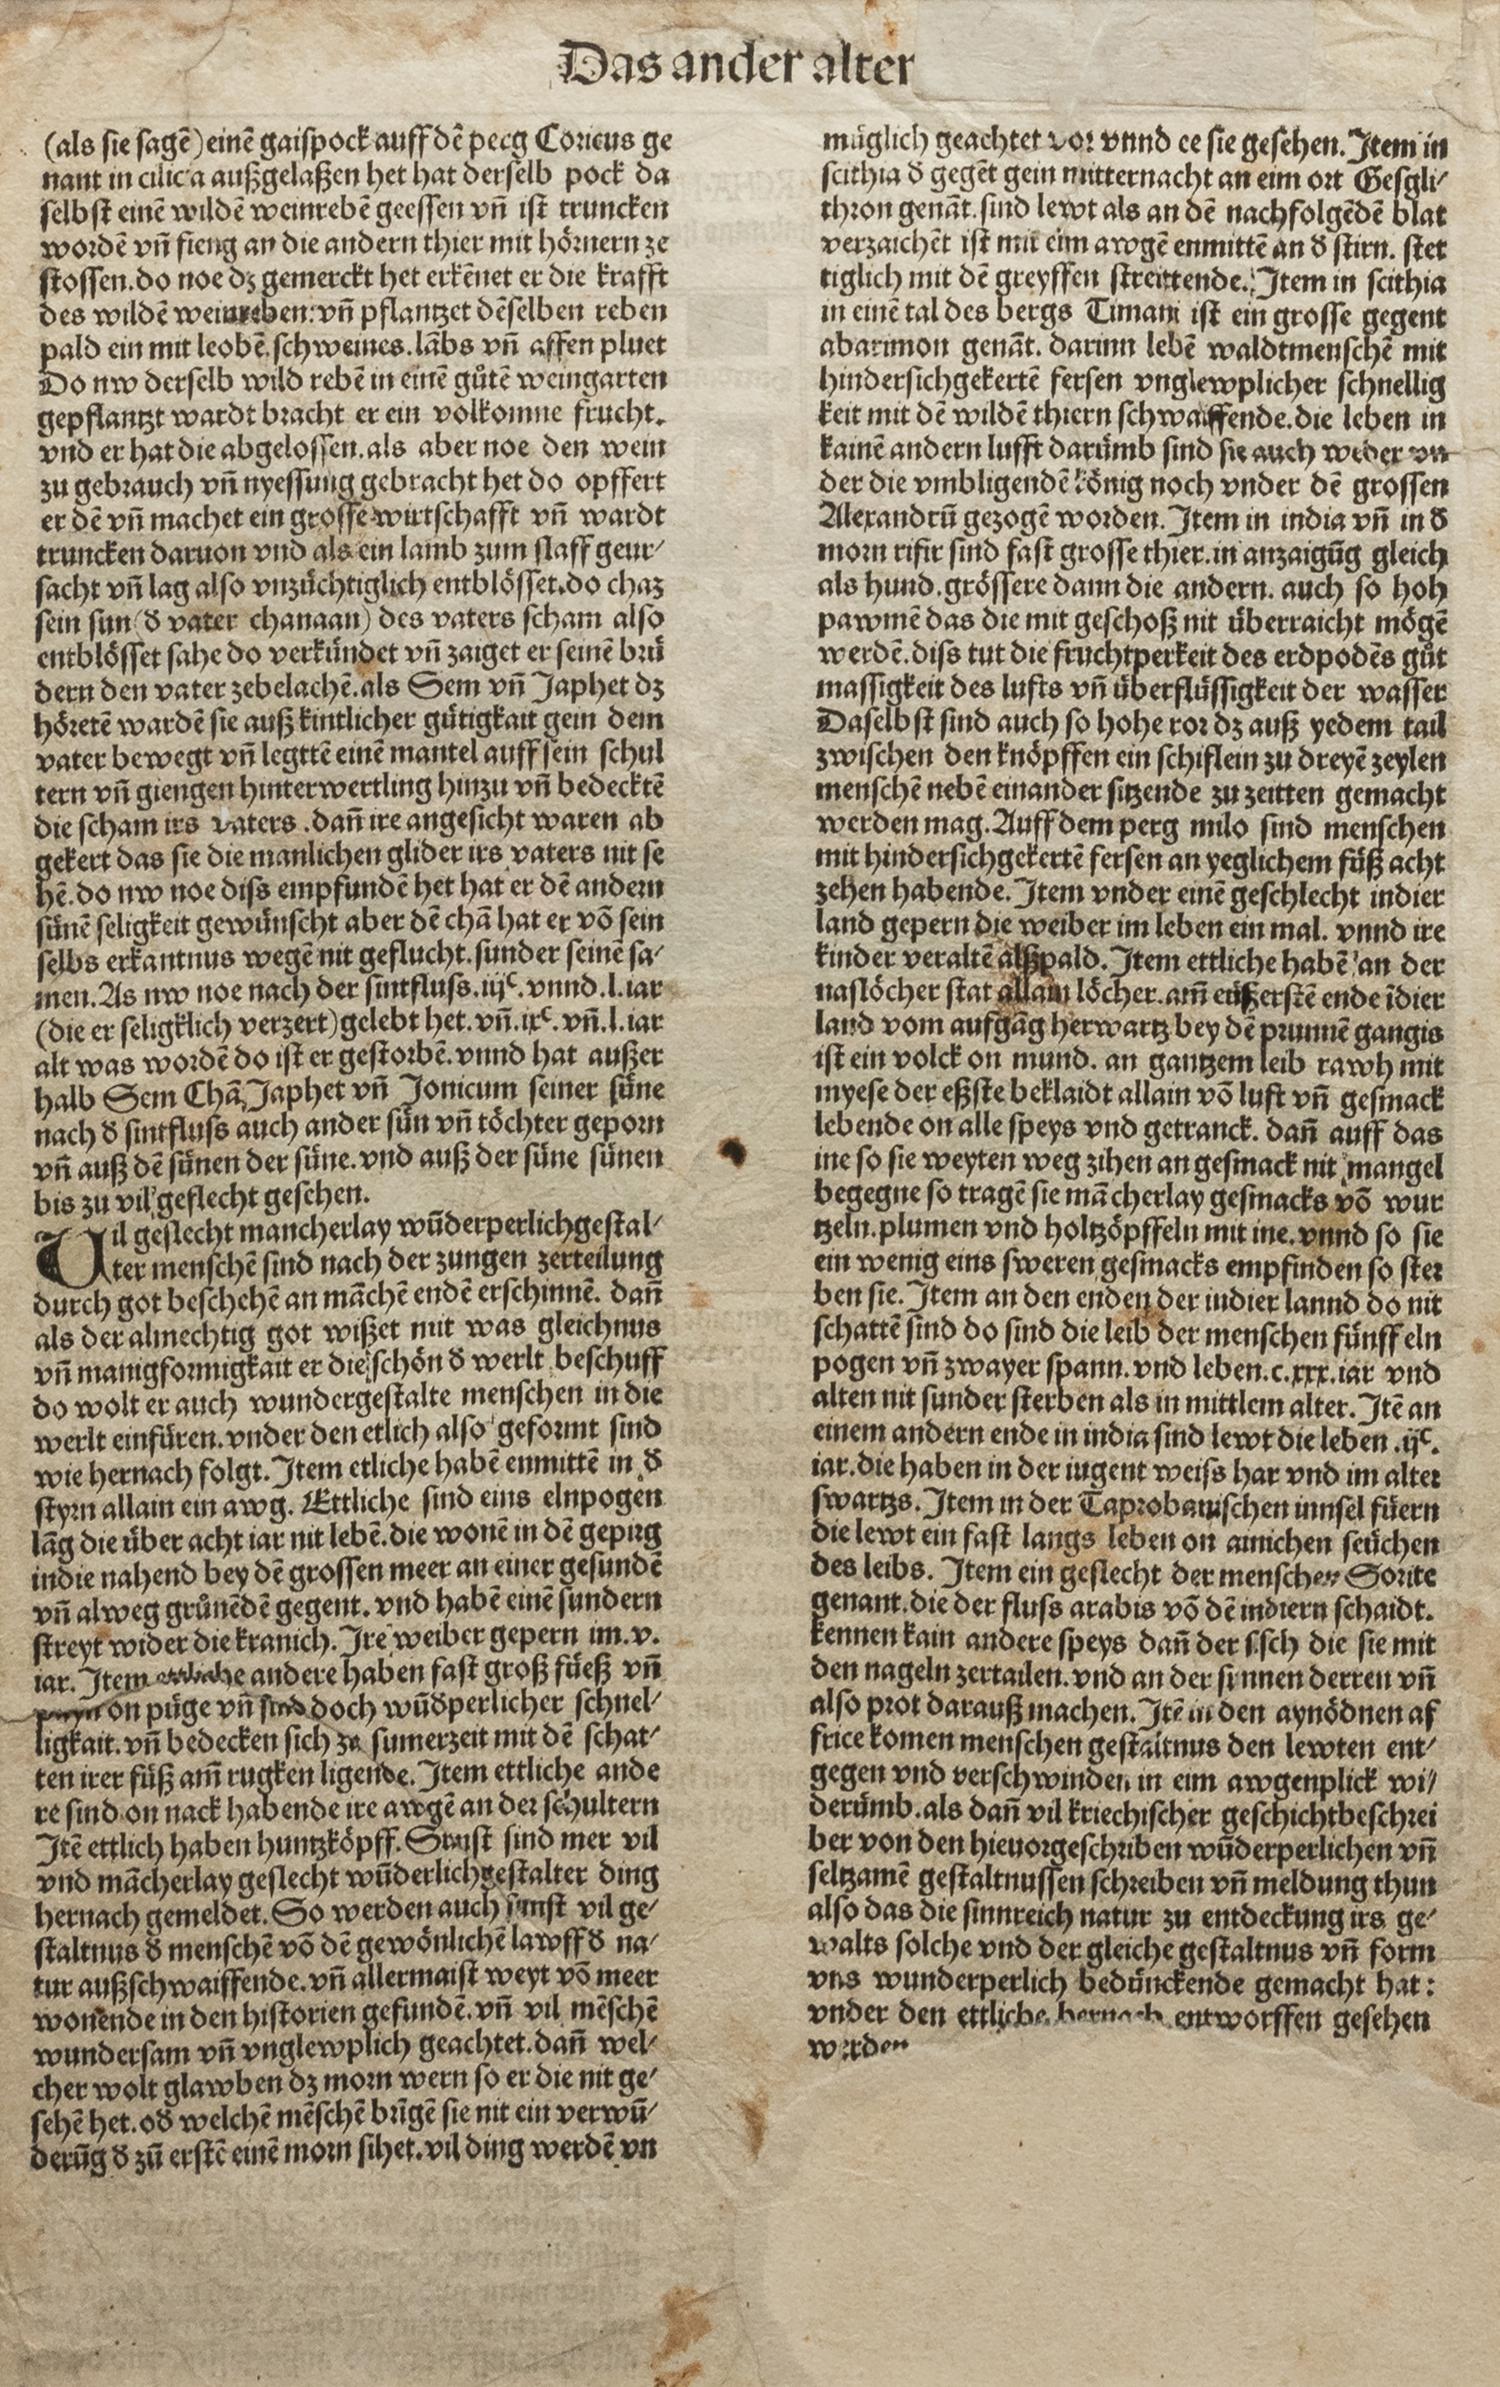 Das ander alter
(als sie sagē) einē gaispock auff dē pecg Coricus ge
nant in cilicia außgelaßen het hat derselb pock da
selbst einē wildē weinrebē geessen vñ ist truncken
wordē vñ fieng an die andern thier mit hörnern ze
stossen. do noe dz gemerckt het erkēnet er die krafft
des wildē weinreben: vñ pflantzet dēselben reben
pald ein mit leobē. schweines. lābs vñ affen pluet
Do nw derselb wild rebē in einē gůtē weingarten
gepflantzt wardt bracht er ein volkomne frucht.
vnd er hat die abgelossen. als aber noe den wein
zu gebrauch vñ nyessung gebracht het do opffert
er dē vñ machet ein grosse wirtschafft vñ wardt
truncken daruon vnd als ein lamb zum slaff geur⸗
sacht vñ lag also vnzüchtiglich entblösset. do chaz
sein sun (đ vater chanaan) des vaters scham also
entblösset sahe do verkündet vñ zaiget er seinē brü
dern den vater zebelachē. als Sem vñ Japhet dz
höretē wardē sie auß kintlicher gütigkait gein dem
vater bewegt vñ legttē einē mantel auff sein schul
tern vñ giengen hinterwertling hinzu vñ bedecktē
die scham irs vaters. dañ ire angesicht waren ab
gekert das sie die manlichen glider irs vaters nit se
hē. do nw noe diss empfundē het hat er dē andern
sünē seligkeit gewünscht aber dē chā hat er vō sein
selbs erkantnus wegē nit geflucht. sunder seinē sa⸗
men. As nw noe nach der sintfluss. iijᶜ. vnnd. l. iar
(die er seligklich verzert) gelebt het. vñ. ixᶜ. vñ. l. iar
alt was wordē do ist er gestorbē. vnnd hat außer
halb Sem Chā Japhet vñ Jonicum seiner süne
nach đ sintfluss auch ander sün vñ töchter geporn
vñ auß dē sünen der süne. vnd auß der süne sünen
bis zu vil geslecht geschen.
Uil geslecht mancherlay wūderperlich gestal⸗
ter menschē sind nach der zungen zerteilung
durch got beschehē an māchē endē erschinnē. dañ
als der almechtig got wißet mit was gleichnus
vñ manigformigkait er die schön đ werlt beschuff
do wolt er auch wundergestalte menschen in die
werlt einfüren. vnder den etlich also geformt sind
wie hernach folgt. Item etliche habē enmittē in đ
styrn allain ein awg. Ettliche sind eins elnpogen
lāg die über acht iar nit lebē. die wonē in dē gepirg
indie nahend bey dē grossen meer an einer gesundē
vñ alweg grůnēdē gegent. vnd habē einē sundern
streyt wider die kranich. Ire weiber gepern im. v.
iar. Item andere haben fast groß füeß vñ
on püge vñ sind doch wūđperlicher schnel⸗
ligkait. vñ bedecken sich zu sumerzeit mit dē schat⸗
ten irer füß am̄ rugken ligende. Item ettliche ande
re sind on nack habende ire awgē an der schultern
Itē ettlich haben huntzköpff. Sunst sind mer vil
vnd mācherlay geslecht wūderlich gestalter ding
hernach gemeldet. So werden auch sunst vil ge⸗
staltnus đ menschē vō dē gewönlichē lawff đ na⸗
tur außschwaiffende. vñ allermaist weyt vō meer
wonende in den historien gefundē. vñ vil mēschē
wundersam vñ vnglewplich geachtet. dañ wel⸗
cher wolt glawben dz morn wern so er die nit ge⸗
sehē het. ođ welchē mēschē brīgē sie nit ein verwū⸗
derūg đ zū erstē einē morn sihet. vil ding werdē vn
müglich geachtet vor vnnd ee sie gesehen. Item in
scithia đ gegēt gein mitternacht an eim ort Gesgli⸗
thron genāt. sind lewt als an dē nachfolgēdē blat
verzaichēt ist mit eim awgē enmittē an đ stirn. stet
tiglich mit dē greyffen streittende. Item in scithia
in einē tal des bergs Timani ist ein grosse gegent
abarimon genāt. darinn lebē waldtmenschē mit
hindersichgekertē fersen vnglewplicher schnellig
keit mit dē wildē thiern schwaiffende. die leben in
kainē andern lufft darümb sind sie auch weder vn
der die vmbligendē könig noch vnder dē grossen
Alexandrū gezogē worden. Item in india vñ in đ
morn rifir sind fast grosse thier. in anzaigūg gleich
als hund. grössere dann die andern. auch so hoh
pawmē das die mit geschoß nit überraicht mögē
werdē. diss tut die fruchtperkeit des erdpodēs gůt
massigkeit des lufts vñ überflüssigkeit der wasser
Daselbst sind auch so hohe ror dz auß yedem tail
zwischen den knöpffen ein schiflein zu dreyē zeylen
menschē nebē einander sitzende zu zeitten gemacht
werden mag. Auff dem perg milo sind menschen
mit hindersichgekertē fersen an yeglichem füß acht
zehen habende. Item vnder einē geschlecht indier
land gepern die weiber im leben ein mal. vnnd ire
kinder veraltē alßpald. Item ettliche habē an der
naslöcher stat allain löcher. am̄ eüßerstē ende īdier
land vom aufgāg herwartz bey dē prunnē gangis
ist ein volck on mund. an gantzem leib rawh mit
myese der eßste beklaidt allain vō luft vñ gesmack
lebende on alle speys vnd getranck. dañ auff das
ine so sie weyten weg zihen an gesmack nit mangel
begegne so tragē sie mācherlay gesmacks vō wur
tzeln. plumen vnd holtzöpffeln mit ine. vnnd so sie
ein wenig eins sweren gesmacks empfinden so ster
ben sie. Item an den enden der indier lannd do nit
schattē sind do sind die leib der menschen fünff eln
pogen vñ zwayer spann. vnd leben. c. xxx. iar vnd
alten nit sunder sterben als in mittlem alter. Itē an
einem andern ende in india sind lewt die leben. ijᶜ.
iar. die haben in der iugent weiss har vnd im alter
swartzs. Item in der Taprobanischen innsel füern
die lewt ein fast langs leben on ainichen seüchen
des leibs. Item ein geslecht der menschen Sorite
genant. die der fluss arabis vō dē indiern schaidt.
kennen kain andere speys dañ der fisch die sie mit
den nageln zertailen. vnd an der sunnen derren vñ
also prot darauß machen. Itē in den aynödnen af
frice komen menschen gestaltnus den lewten ent⸗
gegen vnd verschwinden in eim awgenplick wi⸗
derümb. als dañ vil kriechischer geschichtbeschrei
ber von den hieuorgeschriben wūderperlichen vñ
seltzamē gestaltnussen schreiben vñ meldung thun
also das die sinnreich natur zu entdeckung irs ge⸗
walts solche vnd der gleiche gestaltnus vñ form
vns wunderperlich bedünckende gemacht hat:
vnder den ettliche hernach entworffen gesehen
werden